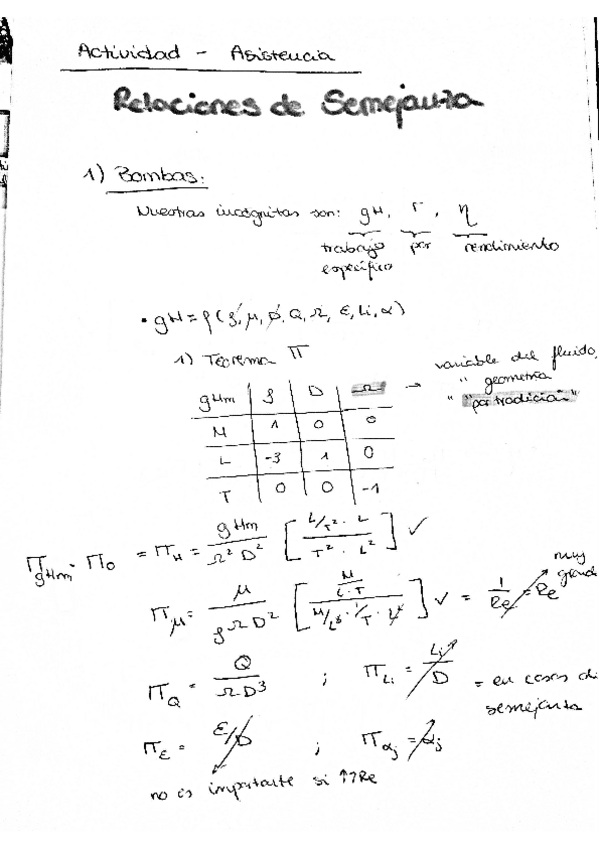 Actividad - Asistencia
Relaciones de Semejanza
1) Bombas:
Nuestras incógnitas son: gH, Γ, η
trabajo específico
par
rendimiento
• gH = f(ρ, μ, D, Q, Ω, ε, Li, α)
1) Teorema Π
gHm | ρ | D | Ω → variable del fluido
M | 1 | 0 | 0 " geometría
L | -3 | 1 | 0 " "por tradición"
T | 0 | 0 | -1
Π gHm = Π0 = ΠH = gHm / Ω² D² [ L/T² · L / T² · L² ] ✓
Πμ = μ / ρΩD² [ M / L·T / M/L³ · 1/T · L² ] ✓ = 1/Re = Re muy grande
ΠQ = Q / ΩD³ ; ΠLi = Li / D = en casos de semejanza
Πε = ε/D ; Παj = αj
no es importante si ↑↑Re